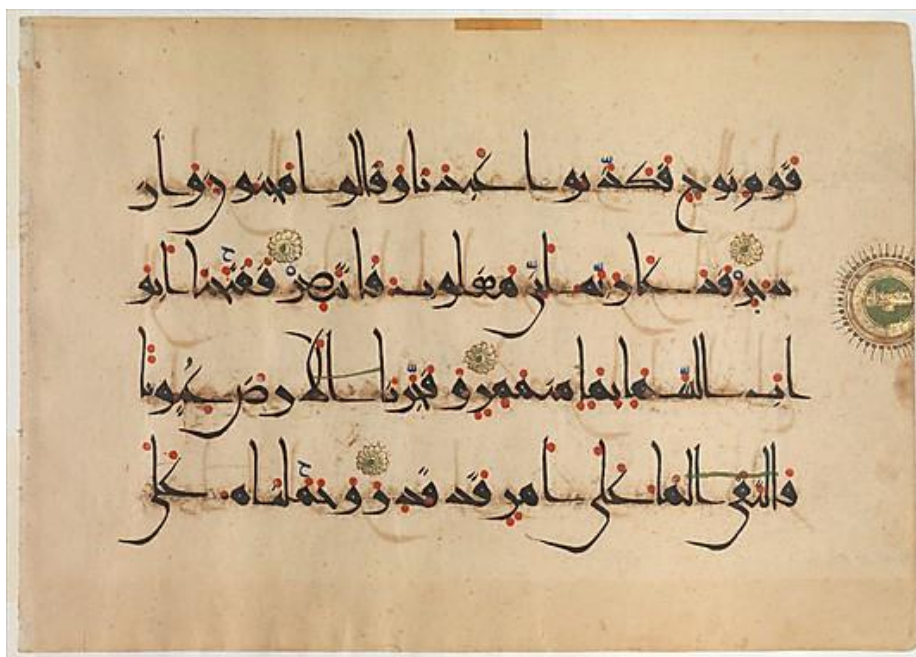 قوم نوح فكذبوا عبدنا وقالوا مجنون واز
دجر فدعا ربه اني مغلوب فانتصر ففتحنا ابو
اب السما بما منهمر وفجرنا الارض عيونا
فالتقى الما على امر قد قدر وحملناه على